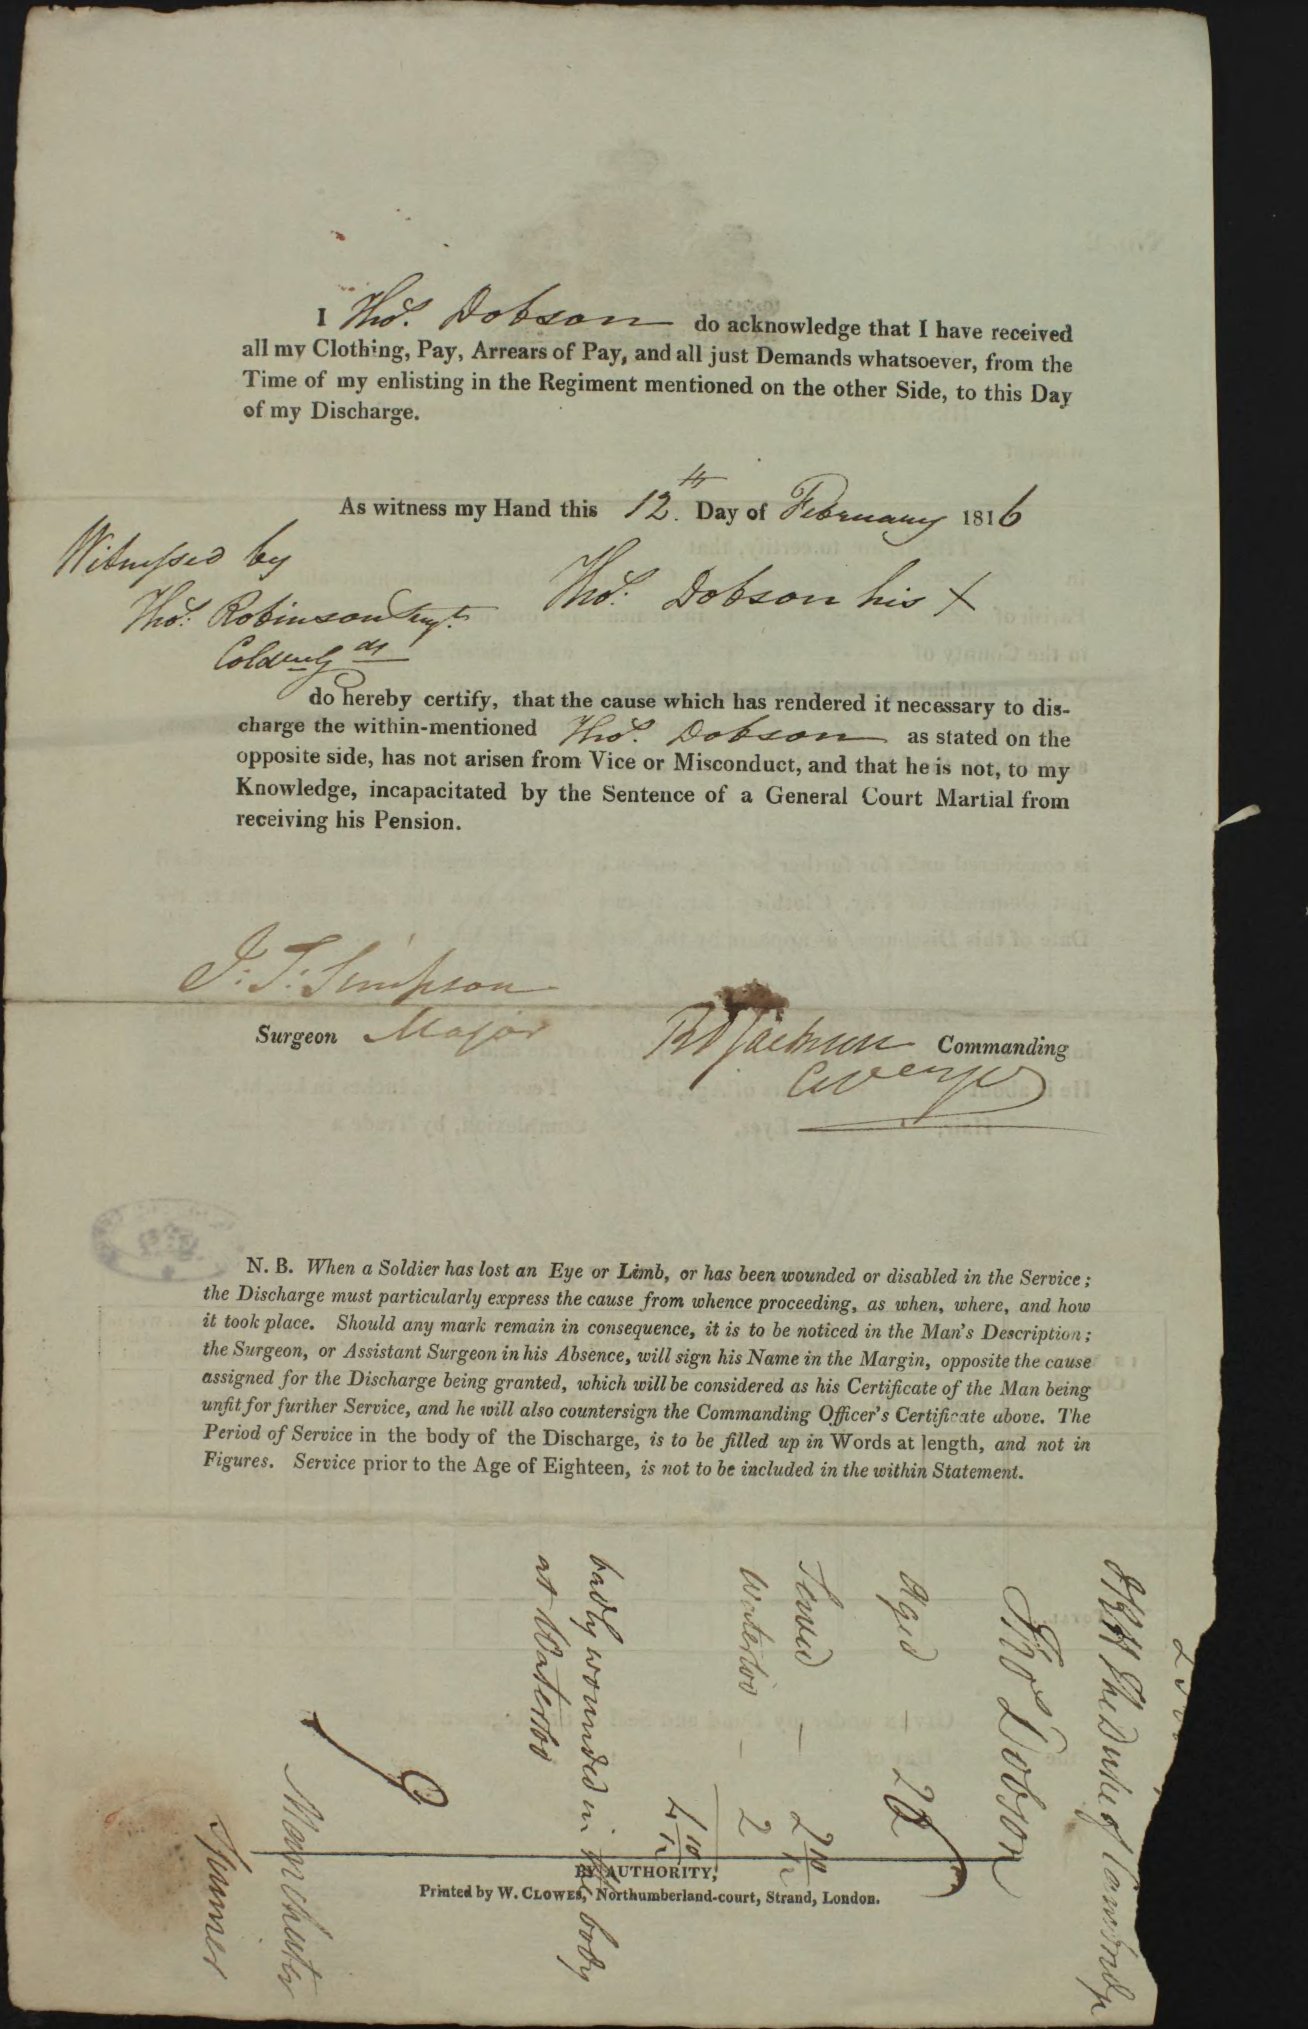 I Thos. Dobson do acknowledge that I have received
all my Clothing, Pay, Arrears of Pay, and all just Demands whatsoever, from the
Time of my enlisting in the Regiment mentioned on the other Side, to this Day
of my Discharge.
As witness my Hand this 12th. Day of February 1816
Witnessed by
Thos. Robinson
Thos. Dobson his X
Coldm Gds
do hereby certify, that the cause which has rendered it necessary to dis-
charge the within-mentioned Thos. Dobson as stated on the
opposite side, has not arisen from Vice or Misconduct, and that he is not, to my
Knowledge, incapacitated by the Sentence of a General Court Martial from
receiving his Pension.
J: T: Simpson
Surgeon Major
Jackson Commanding
N. B. When a Soldier has lost an Eye or Limb, or has been wounded or disabled in the Service;
the Discharge must particularly express the cause from whence proceeding, as when, where, and how
it took place. Should any mark remain in consequence, it is to be noticed in the Man's Description;
the Surgeon, or Assistant Surgeon in his Absence, will sign his Name in the Margin, opposite the cause
assigned for the Discharge being granted, which will be considered as his Certificate of the Man being
unfit for further Service, and he will also countersign the Commanding Officer's Certificate above. The
Period of Service in the body of the Discharge, is to be filled up in Words at length, and not in
Figures. Service prior to the Age of Eighteen, is not to be included in the within Statement.
HRH The Duke of Cambridge
Thos Dobson
Aged - 28
Served - 2 10/12
Waterloo - 2
4 10/12
badly wounded in the body
at Waterloo
9
Manchester
BY AUTHORITY,
Printed by W. CLOWES, Northumberland-court, Strand, London.